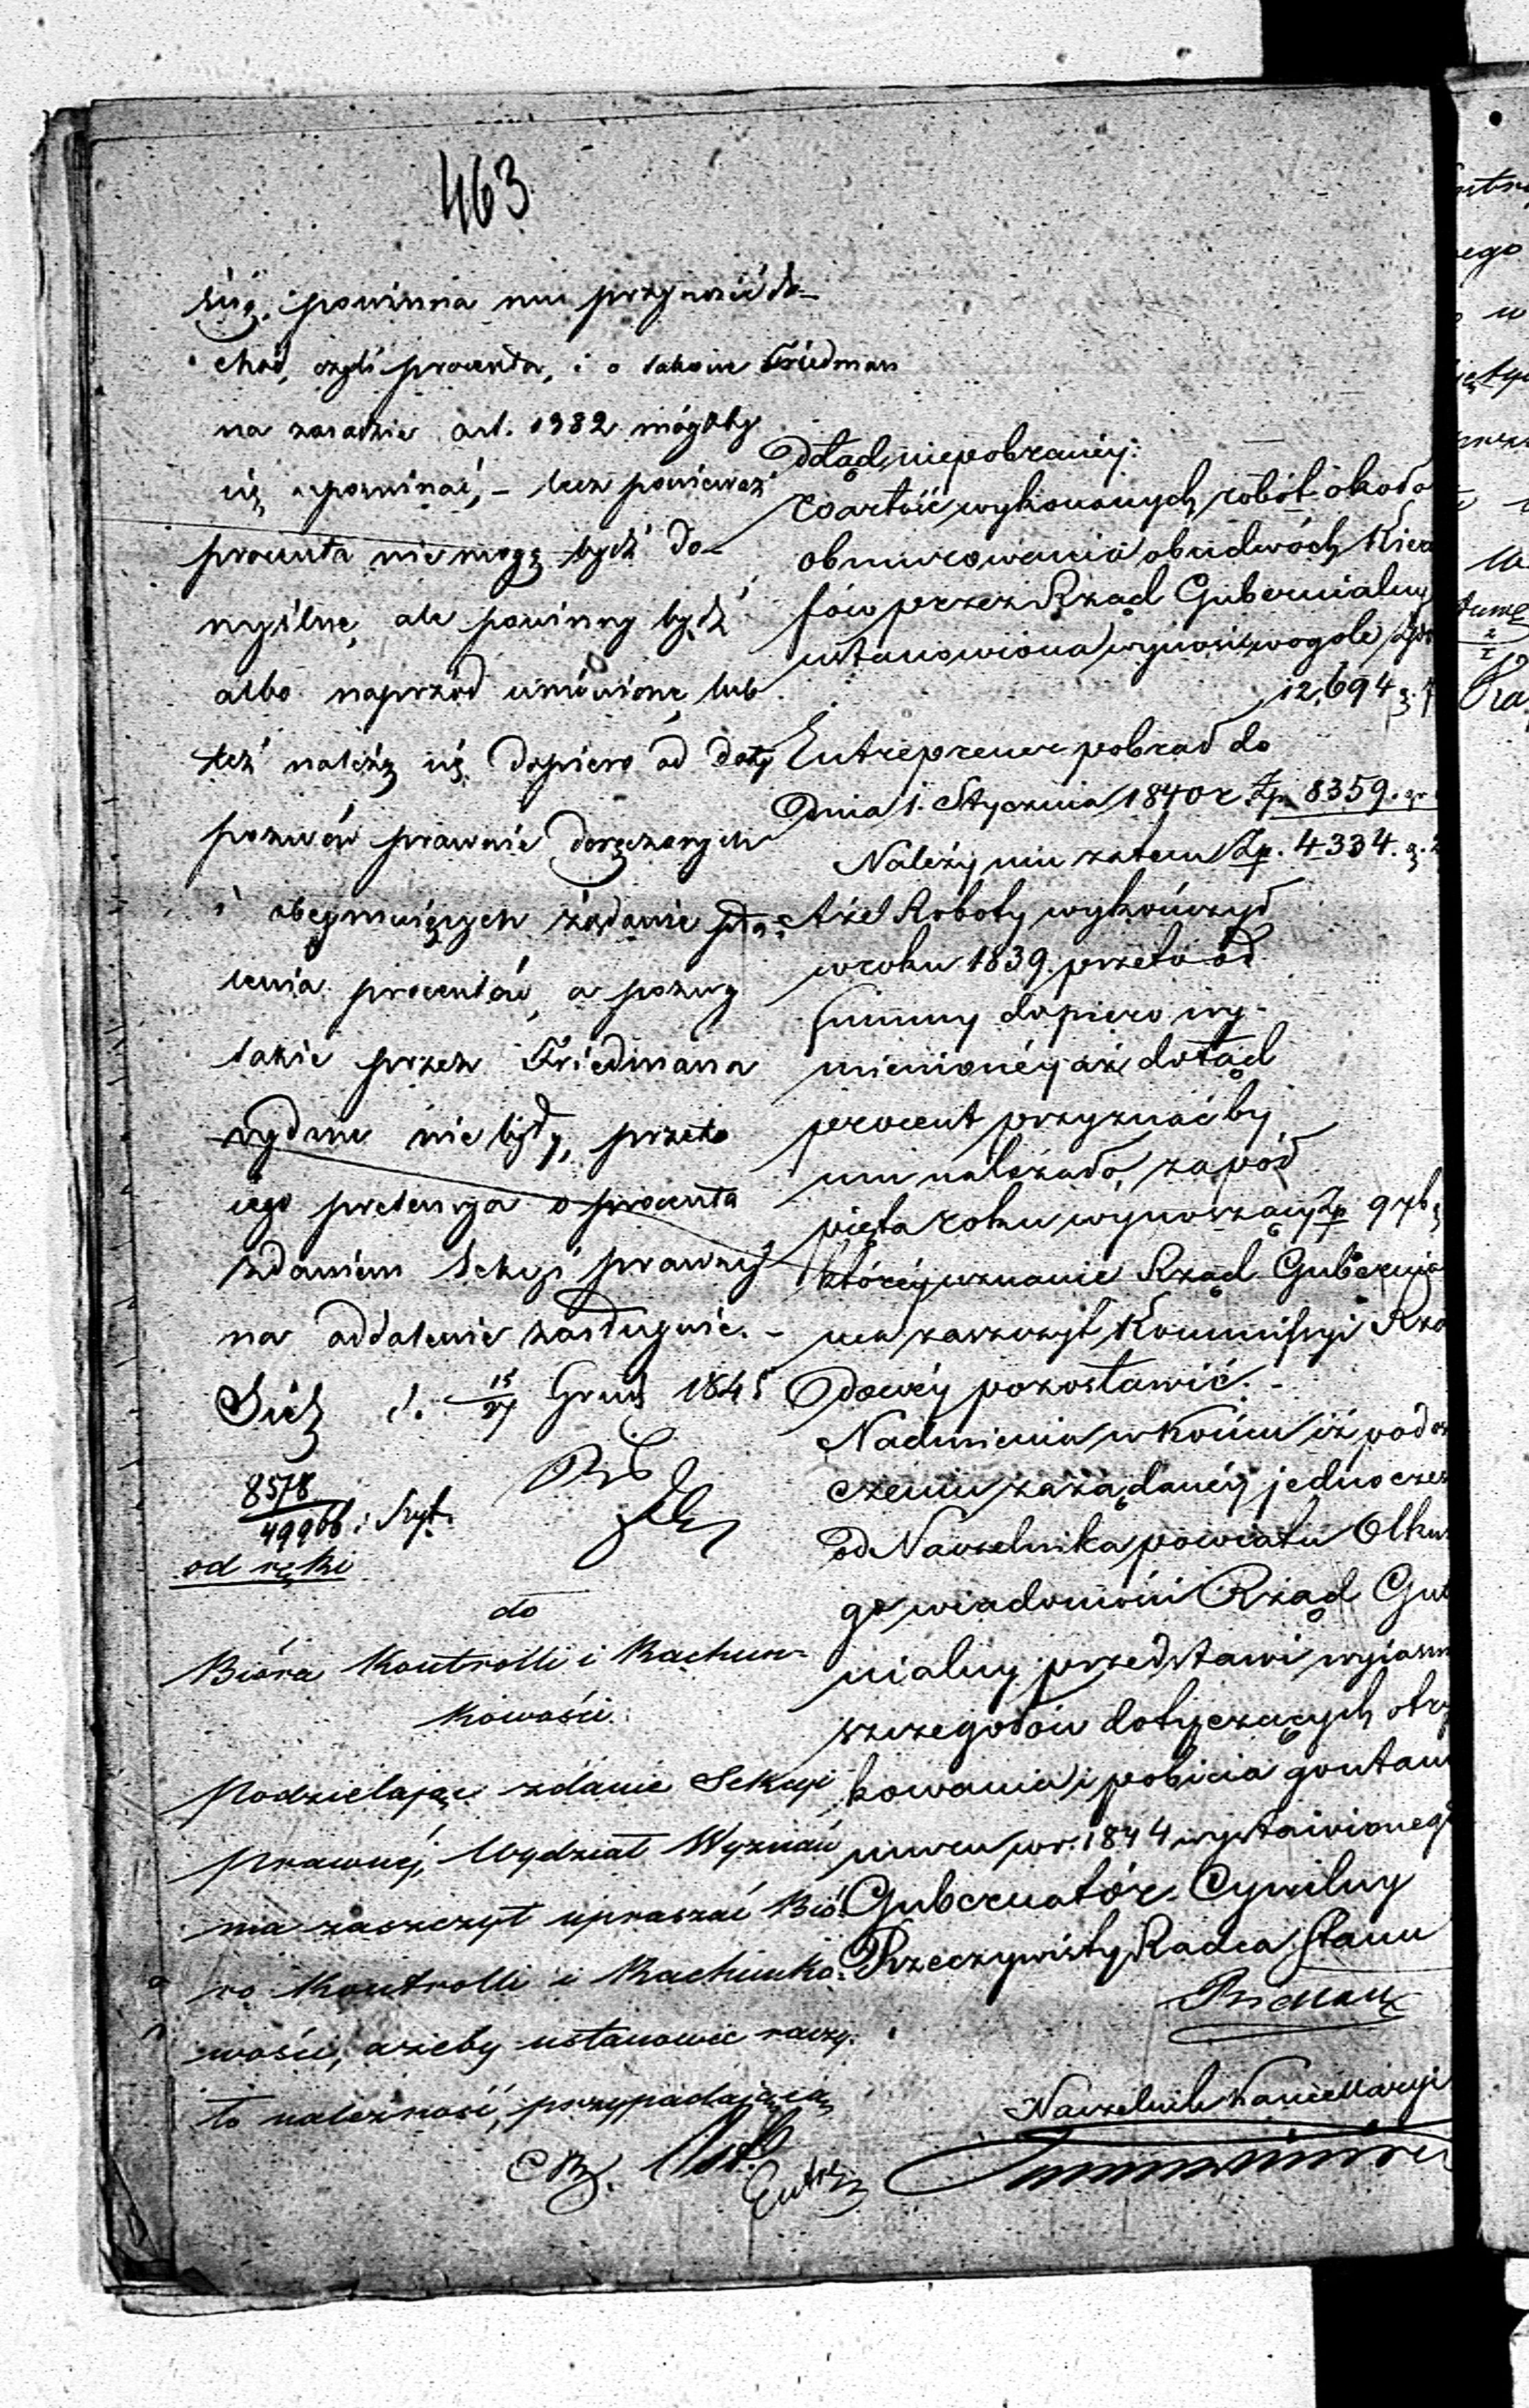 463
się, powinna mu przynosić do-
chód, czyli procenta, i o takowe Friedman
na zasadzie art. 1382 mógłby
się upominać, - lecz ponieważ
procenta nie mogą bydź do-
myślne, ale powinny bydź
albo naprzód umówione, lub
też należą się dopiero od daty
pozwów prawnie doręczonych
i obeymuiących żądanie pła-
cenia procentów, a pozwy
takie przez Friedmana
wydane nie były, przeto
iego pretensya o procenta
zdaniem Sekcyi prawney
na oddalenie zasługuie. -
d. 15/27 Grud 1845
8578
49966
od ręki
do
Bióra Kontrolli i Rachun-
kowości.
Podzielając zdanie Sekcyi
Prawnéj, Wydział Wyznań
ma zaszczyt upraszać Bió-
ro Kontrolli i Rachunko-
wości, ażeby ustanowić raczy-
ło należność, przypadającą
Entrep
dotąd niepobranéy:
Wartość wykonanych robót około
obmurowania obudwóch
przez Rząd Gubernialny
ustanowiona wynosi wogole
12,694
Entreprener pobrał do
Dnia 1. Stycznia 1840 r. Zp. 8359.
Należy mu zatem Zp. 4334.
Ażeł Roboty wykończył
w roku 1839. przeto od
summy dopiero wy-
mienionéy aż dotąd
procent przyznać by
mu należało, za pół
pięta roku wynoszący Zp 976
któréy uznanie Rząd Gubernia
ma zaszczyt Kommissyi Rzą
dowéy pozostawić. -
Nadmienia w końcu iż po
czeniu zażądanéy jednocześ
od Naczelnika powiatu Olkus
go wiadomości Rząd Gub
nialny przedstawi wyiaśn
szczegołów dotyczących otzy
kowania i pobicia gontam
muru w r. 1844 wystawionego
Gubernatór Cywilny
Rzeczywisty Radca Stanu
Naczelnik Kancellaryi